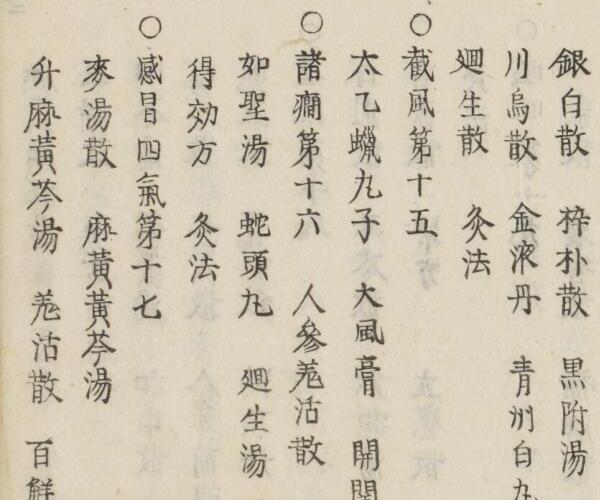 銀白散　梓朴散　黒附湯
川烏散　金液丹　青州白丸
廻生散　灸法
○截風第十五
太乙蠟丸子　大風膏　開関
○諸癇第十六　人參羌活散
如聖湯　蛇頭丸　廻生湯
得効方　灸法
○感冒四氣第十七
麥湯散　麻黃黃芩湯
升麻黃芩湯　羌活散　百鮮